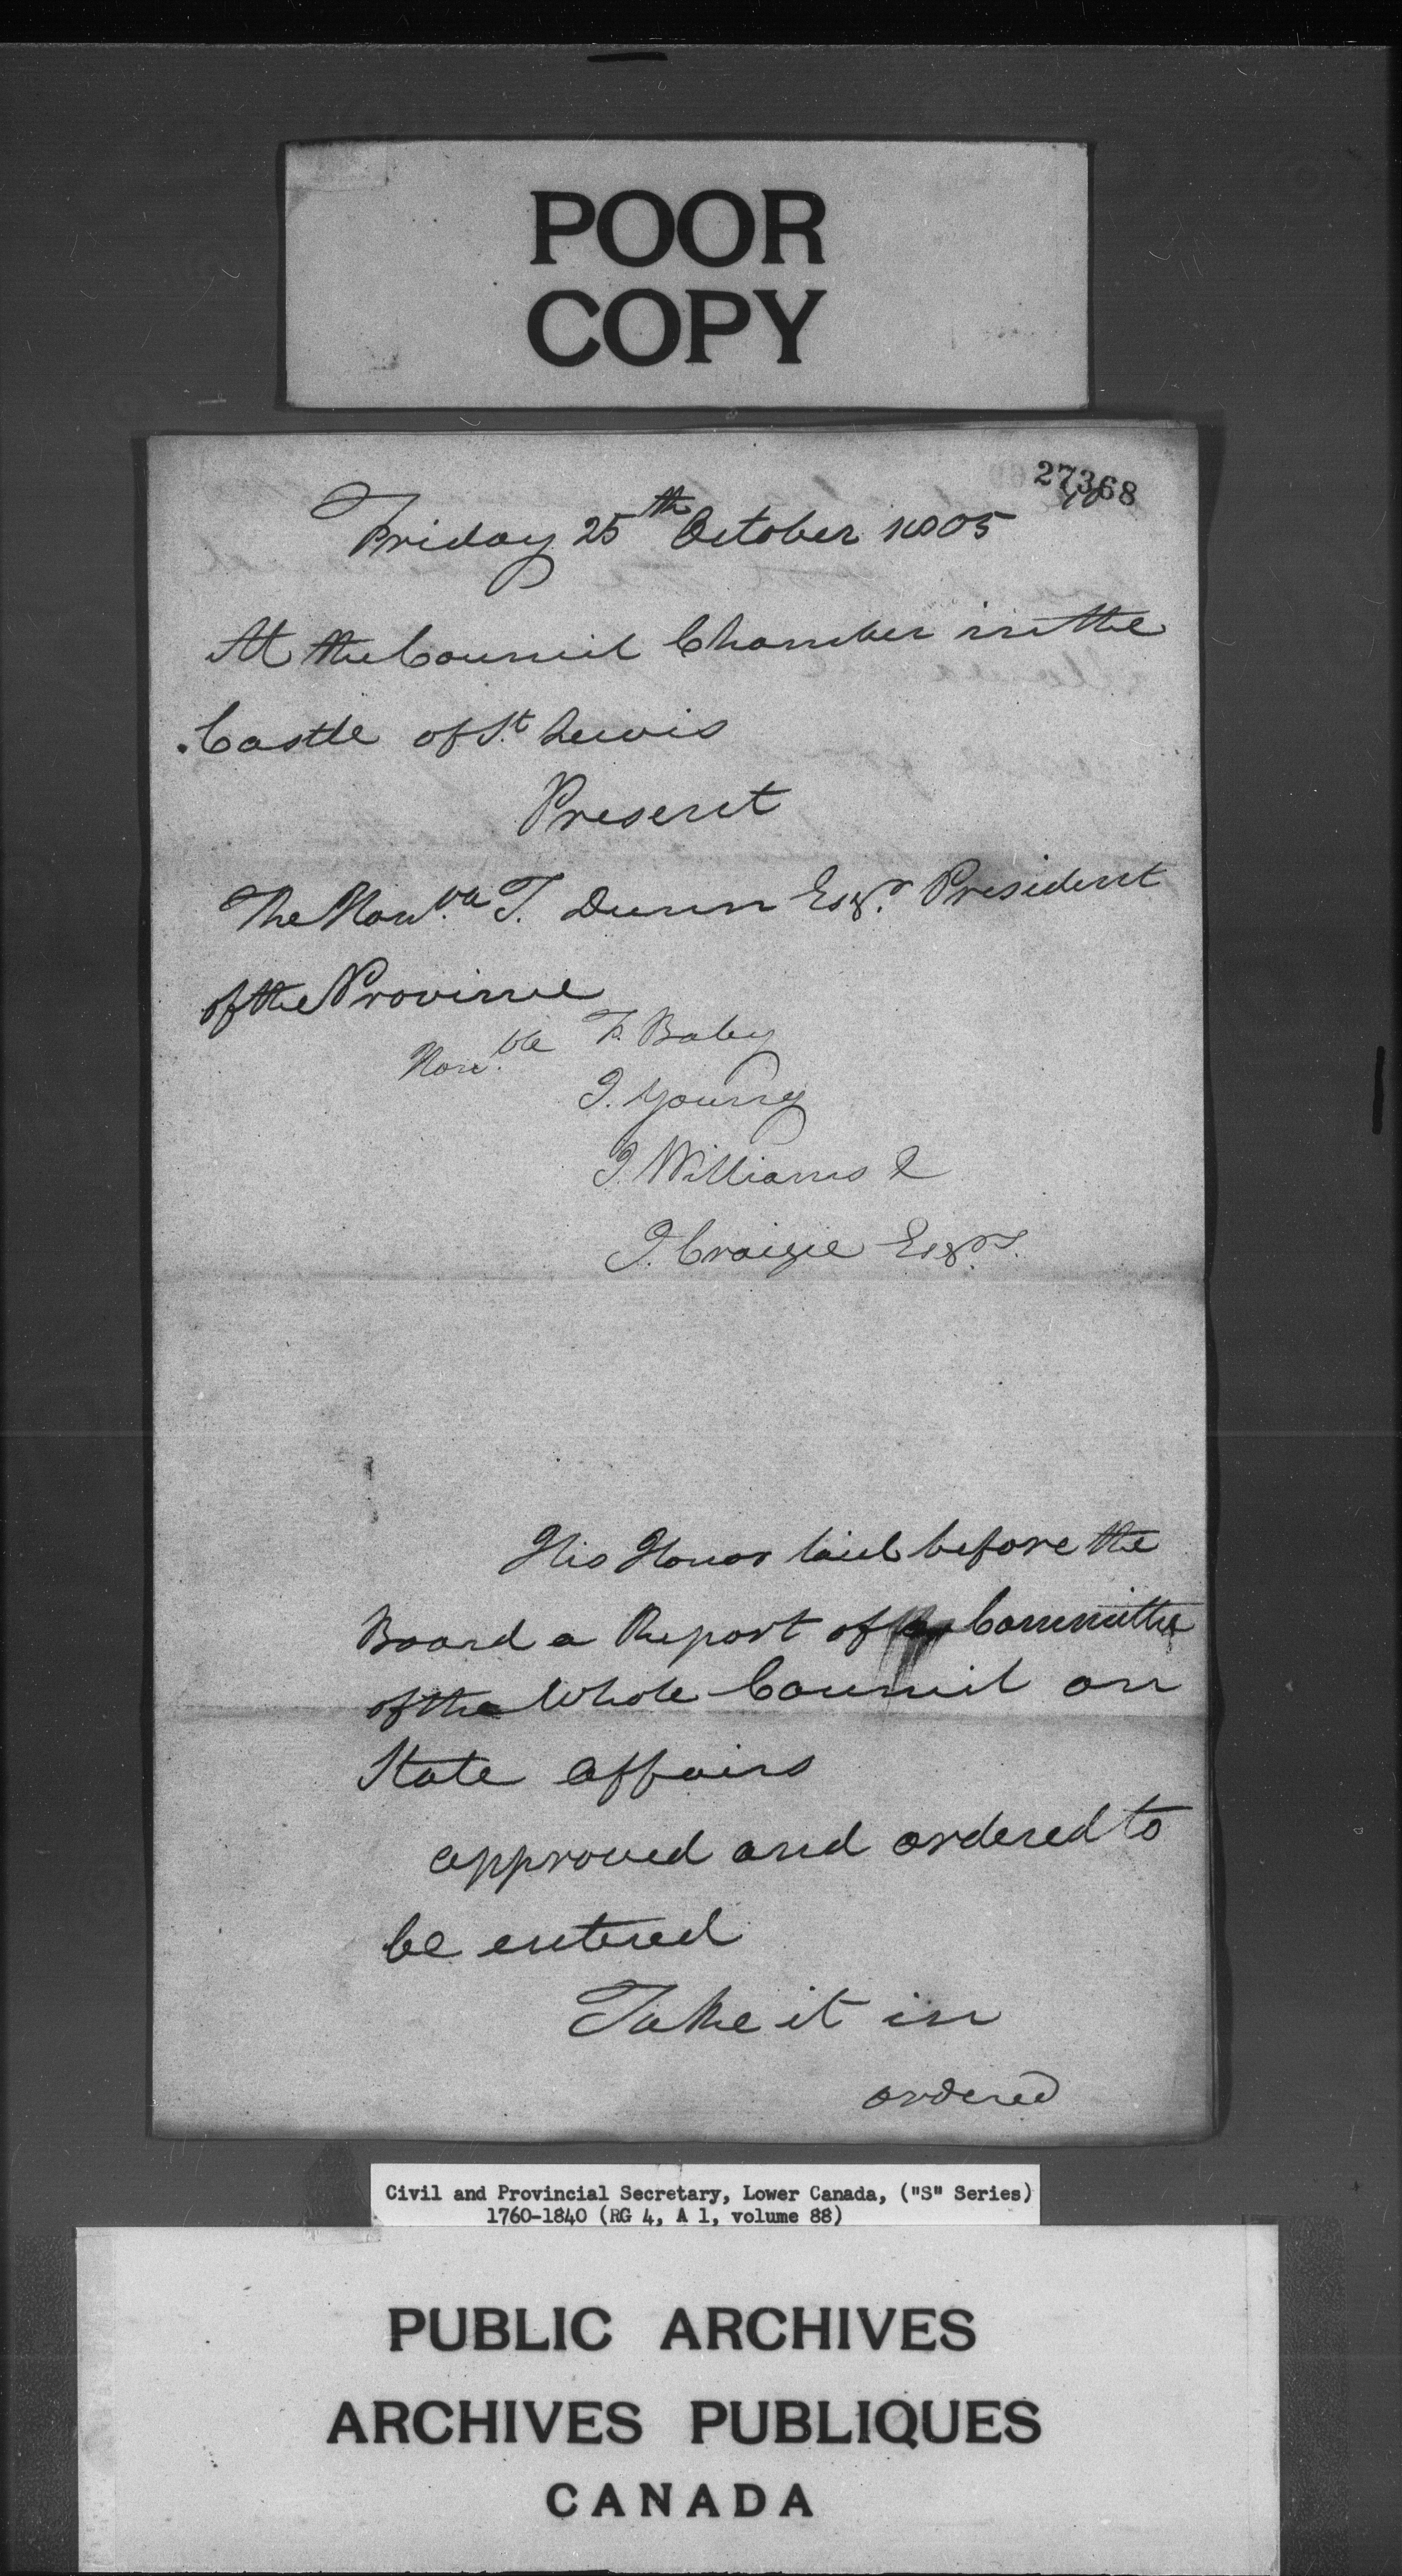 POOR
COPY
27368
Friday 25th October 1805
At the Council Chamber in the
Castle of St. Lewis
Present
The Honble T. Dunn Esqr. President
of the Province
Honble F. Baby
J. Young
J. Williams &
J. Craigie Esqrs.
His Honor laid before the
Board a Report of Committee
of the Whole Council on
State affairs
approved and ordered to
be entered
Take it in
ordered
Civil and Provincial Secretary, Lower Canada, ("S" Series)
1760-1840 (RG 4, A 1, volume 88)
PUBLIC ARCHIVES
ARCHIVES PUBLIQUES
CANADA